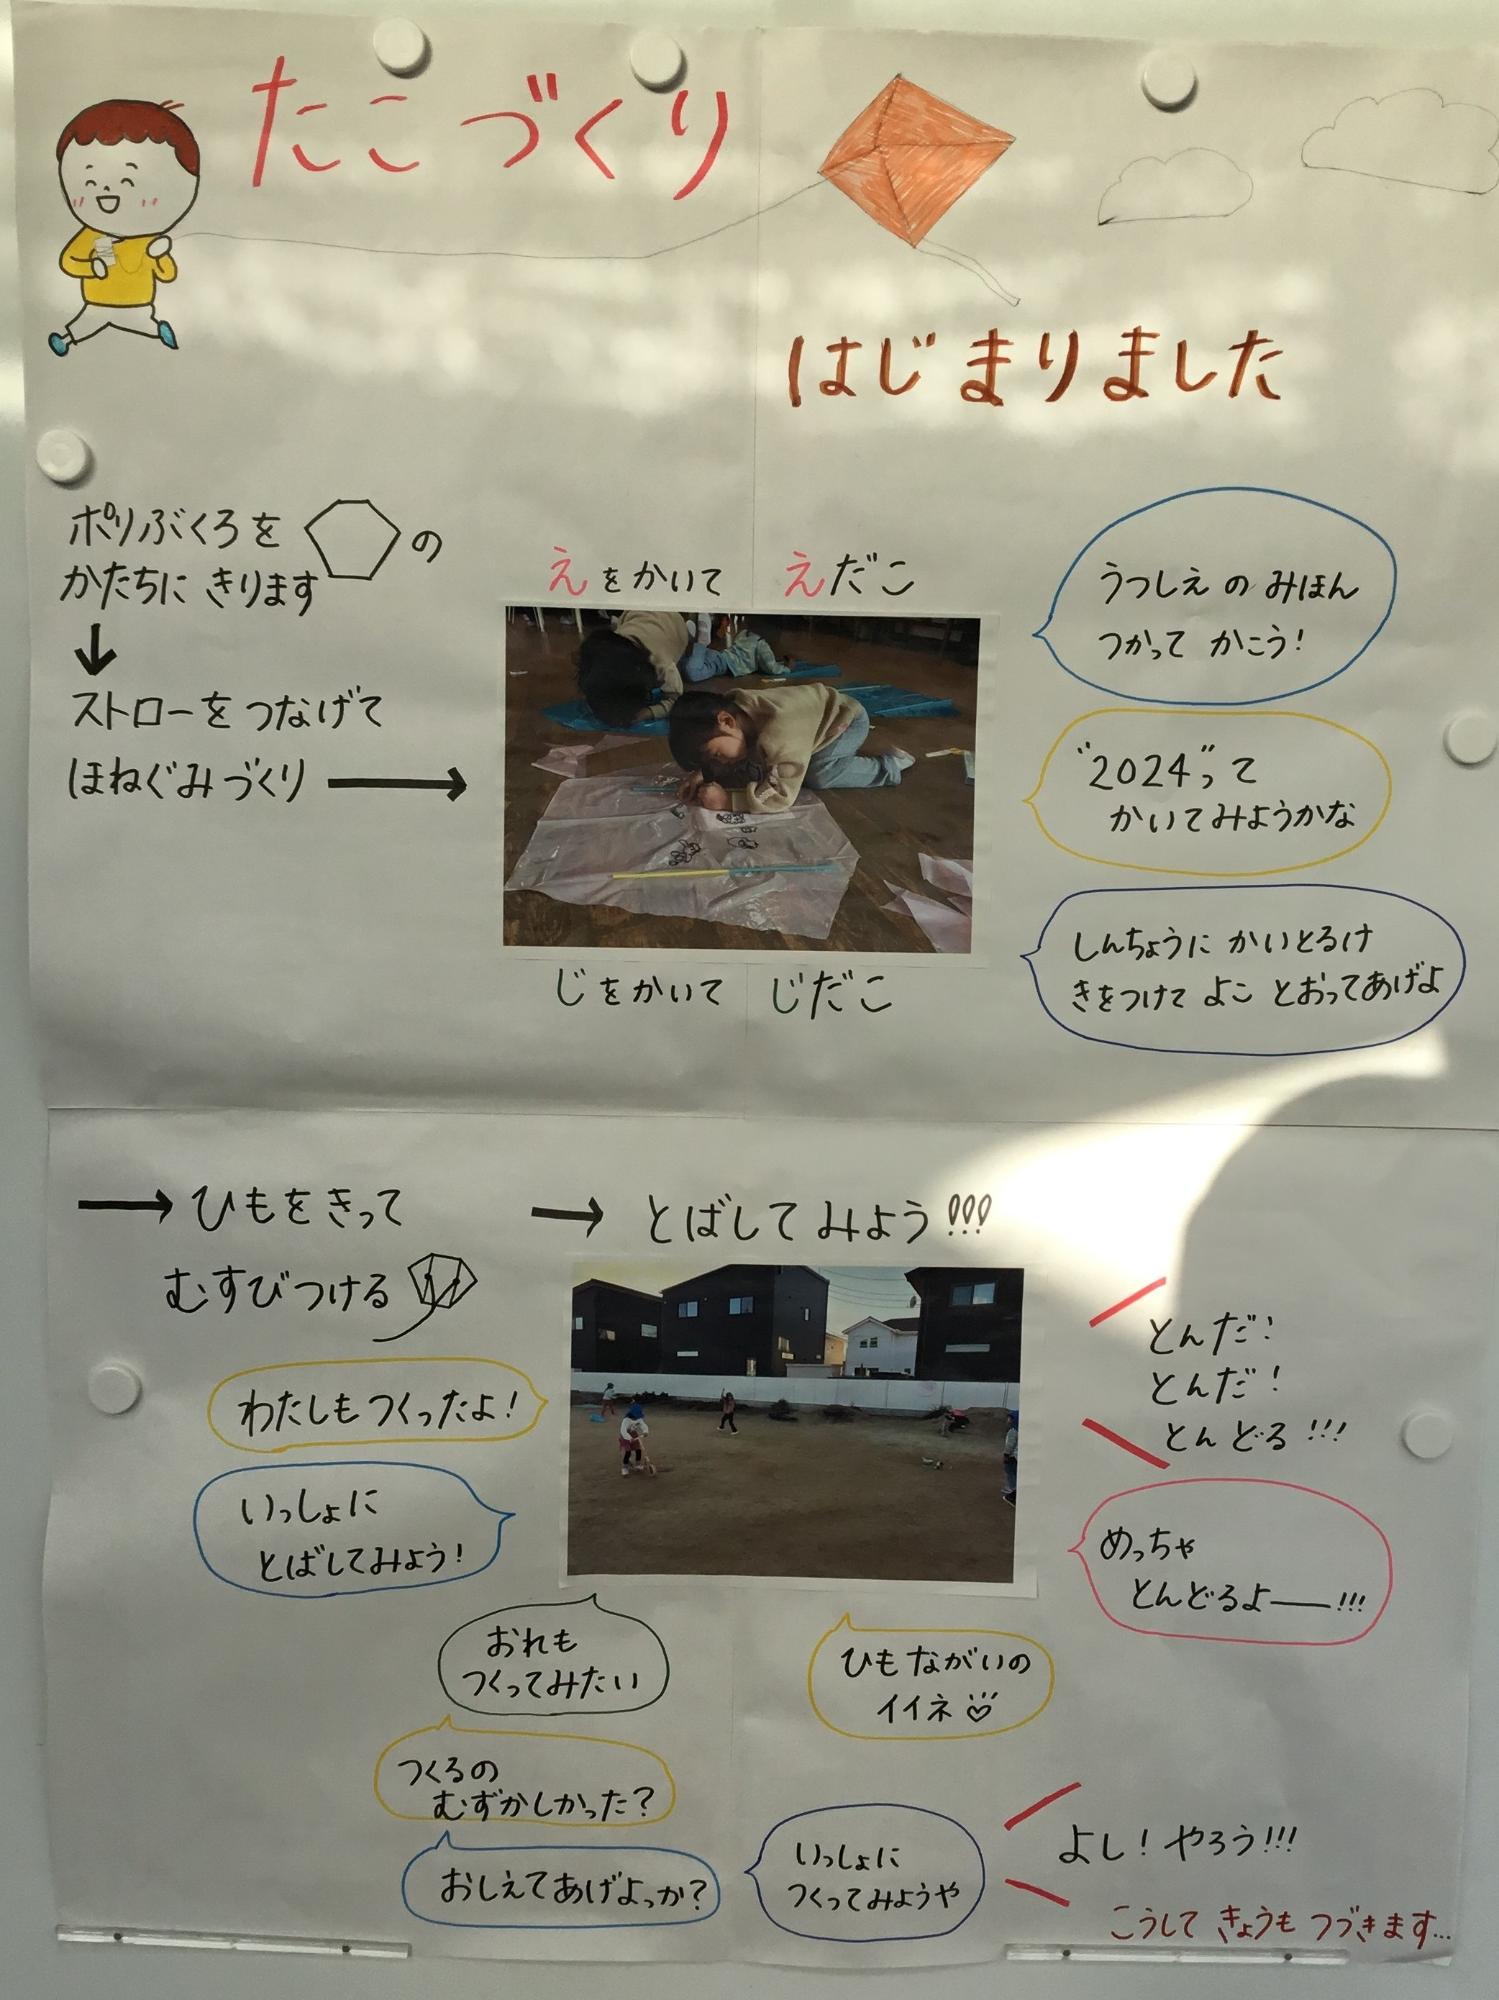 たこづくり
はじまりました
ポリぶくろを の
かたちに きります
↓
ストローをつなげて
ほねぐみづくり →
えをかいて えだこ
じをかいて じだこ
うつしえ の みほん
つかって かこう!
"2024"って
かいてみようかな
しんちょうに かいとるけ
きをつけて よこ とおってあげよ
→ ひもをきって
むすびつける
→ とばしてみよう!!!
わたしもつくったよ!
いっしょに
とばしてみよう!
とんだ!
とんだ!
とんどる!!!
めっちゃ
とんどるよー!!!
おれも
つくってみたい
ひもながいの
イイネ♡
つくるの
むずかしかった?
おしえてあげよっか?
いっしょに
つくってみようや
よし! やろう!!!
こうして きょうも つづきます...